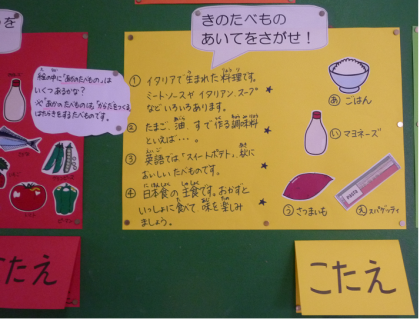 を
絵の中に「あかのたべもの」は
いくつあるかな?
※「あかのたべもの」は「からだをつくる」
はたらきをするたべものです。
たえ
きのたべもの
あいてをさがせ!
① イタリアで生まれた料理です。
ミートソースやイタリアン、スープ
などいろいろあります。
② たまご、油、すで作る調味料
といえば・・・。
③ 英語では「スイートポテト」、秋に
おいしいたべものです。
④ 日本食の主食です。おかずと
いっしょに食べて味を楽しみ
ましょう。
あ ごはん
い マヨネーズ
う さつまいも
え スパゲッティ
こたえ